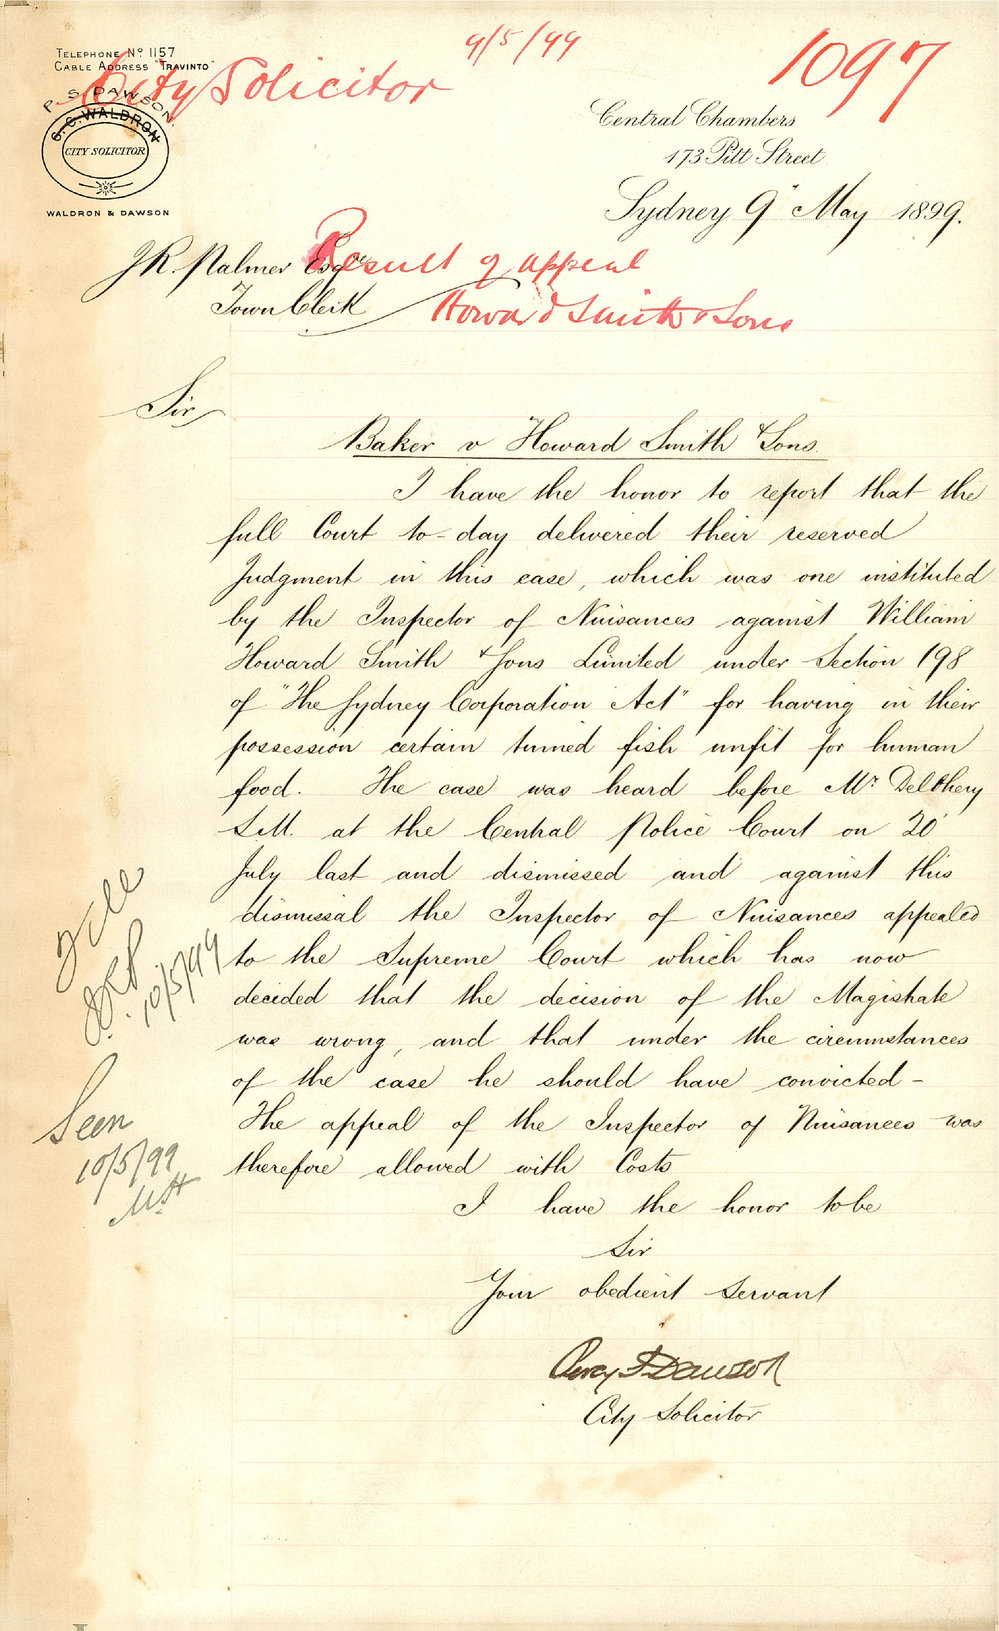 9/5/99
1097
TELEPHONE No 1157
CABLE ADDRESS "TRAVINTO"
City Solicitor
P. S. DAWSON.
G. C. WALDRON
CITY SOLICITOR
WALDRON & DAWSON
Central Chambers
173 Pitt Street
Sydney 9" May 1899.
J. R. Palmer Esqre
Town Clerk
Result of appeal
Howard Smith & Sons
Sir
Baker v Howard Smith & Sons.
I have the honor to report that the
full Court to-day delivered their reserved
Judgment in this case, which was one instituted
by the Inspector of Nuisances against William
Howard Smith & Sons Limited under Section 198
of "The Sydney Corporation Act" for having in their
possession certain tinned fish unfit for human
food. The case was heard before Mr Delohery
S.M. at the Central Police Court on 20
July last and dismissed and against this
dismissal the Inspector of Nuisances appealed
to the Supreme Court which has now
decided that the decision of the Magistrate
was wrong, and that under the circumstances
of the case he should have convicted -
The appeal of the Inspector of Nuisances was
therefore allowed with Costs
I have the honor to be
Sir
Your obedient Servant
Percy S Dawson
City Solicitor
10/5/99
Seen
10/5/99